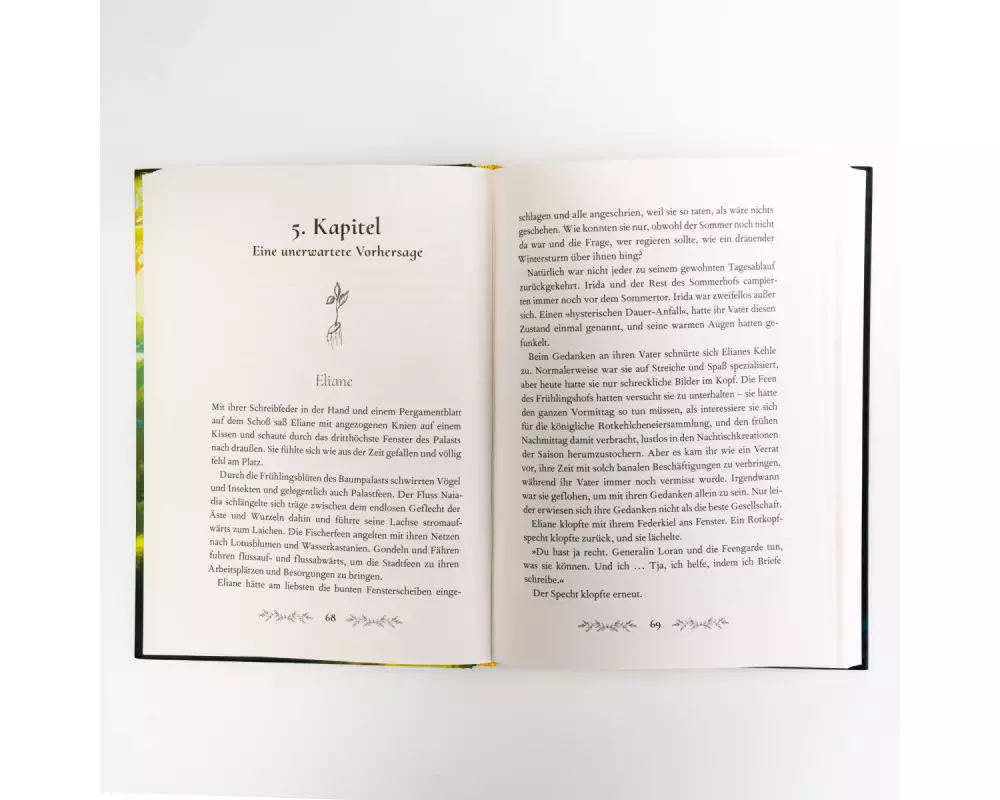 5. Kapitel
Eine unerwartete Vorhersage
Eliane
Mit ihrer Schreibfeder in der Hand und einem Pergamentblatt
auf dem Schoß saß Eliane mit angezogenen Knien auf einem
Kissen und schaute durch das dritthöchste Fenster des Palasts
nach draußen. Sie fühlte sich wie aus der Zeit gefallen und völlig
fehl am Platz.
Durch die Frühlingsblüten des Baumpalasts schwirrten Vögel
und Insekten und gelegentlich auch Palastfeen. Der Fluss Naia-
dia schlängelte sich träge zwischen dem endlosen Geflecht der
Äste und Wurzeln dahin und führte seine Lachse stromauf-
wärts zum Laichen. Die Fischerfeen angelten mit ihren Netzen
nach Lotusblumen und Wasserkastanien. Gondeln und Fähren
fuhren flussauf- und flussabwärts, um die Stadtfeen zu ihren
Arbeitsplätzen und Besorgungen zu bringen.
Eliane hätte am liebsten die bunten Fensterscheiben einge-
68
schlagen und alle angeschrien, weil sie so taten, als wäre nichts
geschehen. Wie konnten sie nur, obwohl der Sommer noch nicht
da war und die Frage, wer regieren sollte, wie ein dräuender
Wintersturm über ihnen hing?
Natürlich war nicht jeder zu seinem gewohnten Tagesablauf
zurückgekehrt. Irida und der Rest des Sommerhofs campier-
ten immer noch vor dem Sommertor. Irida war zweifellos außer
sich. Einen »hysterischen Dauer-Anfall«, hatte ihr Vater diesen
Zustand einmal genannt, und seine warmen Augen hatten ge-
funkelt.
Beim Gedanken an ihren Vater schnürte sich Elianes Kehle
zu. Normalerweise war sie auf Streiche und Spaß spezialisiert,
aber heute hatte sie nur schreckliche Bilder im Kopf. Die Feen
des Frühlingshofs hatten versucht sie zu unterhalten – sie hatte
den ganzen Vormittag so tun müssen, als interessiere sie sich
für die königliche Rotkehlcheneiersammlung, und den frühen
Nachmittag damit verbracht, lustlos in den Nachtischkreationen
der Saison herumzustochern. Aber es kam ihr wie ein Verrat
vor, ihre Zeit mit solch banalen Beschäftigungen zu verbringen,
während ihr Vater immer noch vermisst wurde. Irgendwann
war sie geflohen, um mit ihren Gedanken allein zu sein. Nur lei-
der erwiesen sich ihre Gedanken nicht als die beste Gesellschaft.
Eliane klopfte mit ihrem Federkiel ans Fenster. Ein Rotkopf-
specht klopfte zurück, und sie lächelte.
»Du hast ja recht. Generalin Loran und die Feengarde tun,
was sie können. Und ich … Tja, ich helfe, indem ich Briefe
schreibe.«
Der Specht klopfte erneut.
69